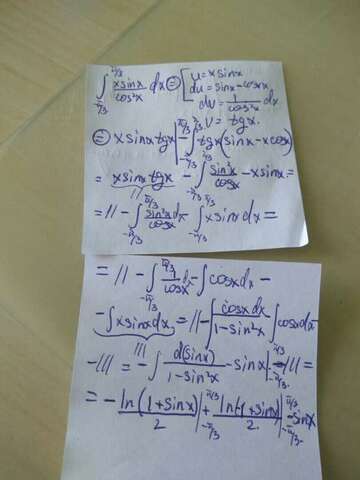 ∫_{-π/3}^{π/3} xsinx/cos²x dx = [ u = xsinx
du = sinx - cosx x
dv = 1/cos²x dx
v = tgx.
= xsinx tgx |_{-π/3}^{π/3} - ∫_{-π/3}^{π/3} tgx (sinx - xcosx)
= xsinx tgx - ∫_{-π/3}^{π/3} sin²x/cosx - xsinx =
= // - ∫_{-π/3}^{π/3} sin²x/cosx dx - ∫_{-π/3}^{π/3} xsinx dx =
= // - ∫_{-π/3}^{π/3} 1/cosx dx - ∫cosx dx -
- ∫xsinx dx = // - ∫ cosx dx/(1-sin²x) ∫cosx dx -
- /// = - ∫ d(sinx)/(1-sin²x) - sinx |_{-π/3}^{π/3} - /// =
= - ln(1+sinx)/2 |_{-π/3}^{π/3} + ln(-1+sinx)/2 |_{-π/3}^{π/3} - sinx